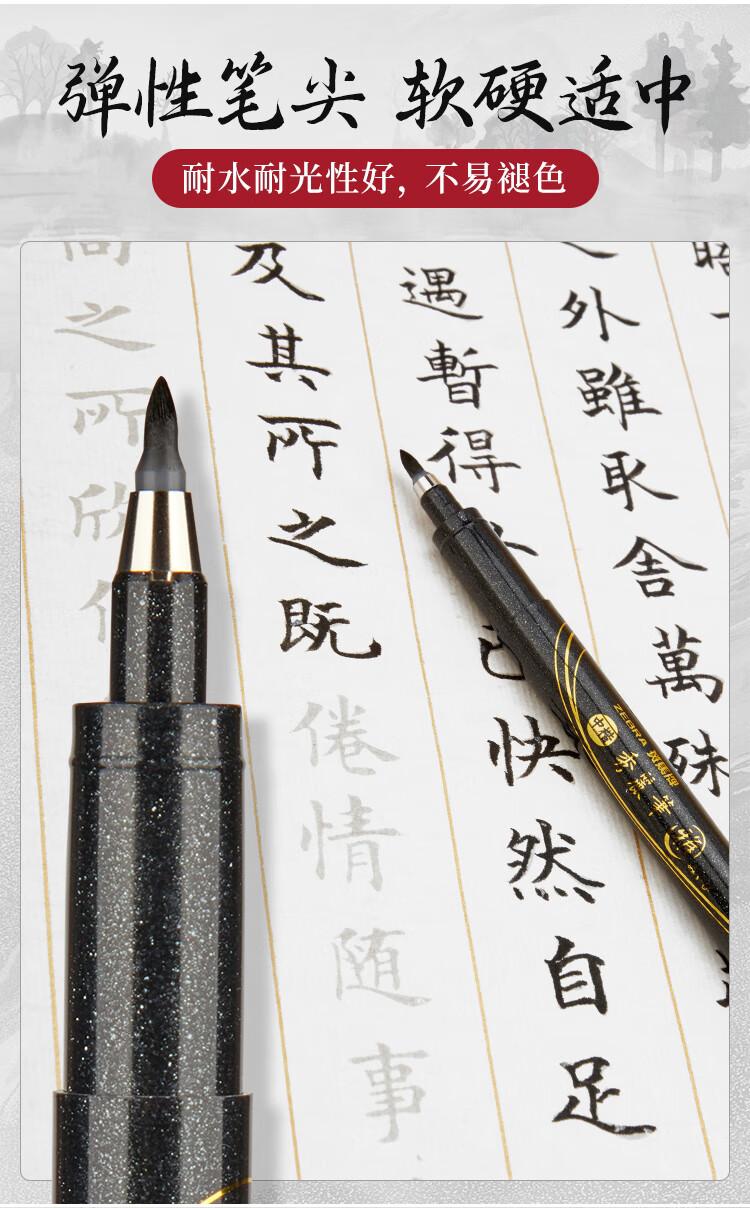 弹性笔尖 软硬适中
耐水耐光性好，不易褪色
外雖取舍萬殊
遇暫得
己快然自足
及其所之既倦情随事
之所欣
ZEBRA 斑馬牌
中楷 秀麗筆